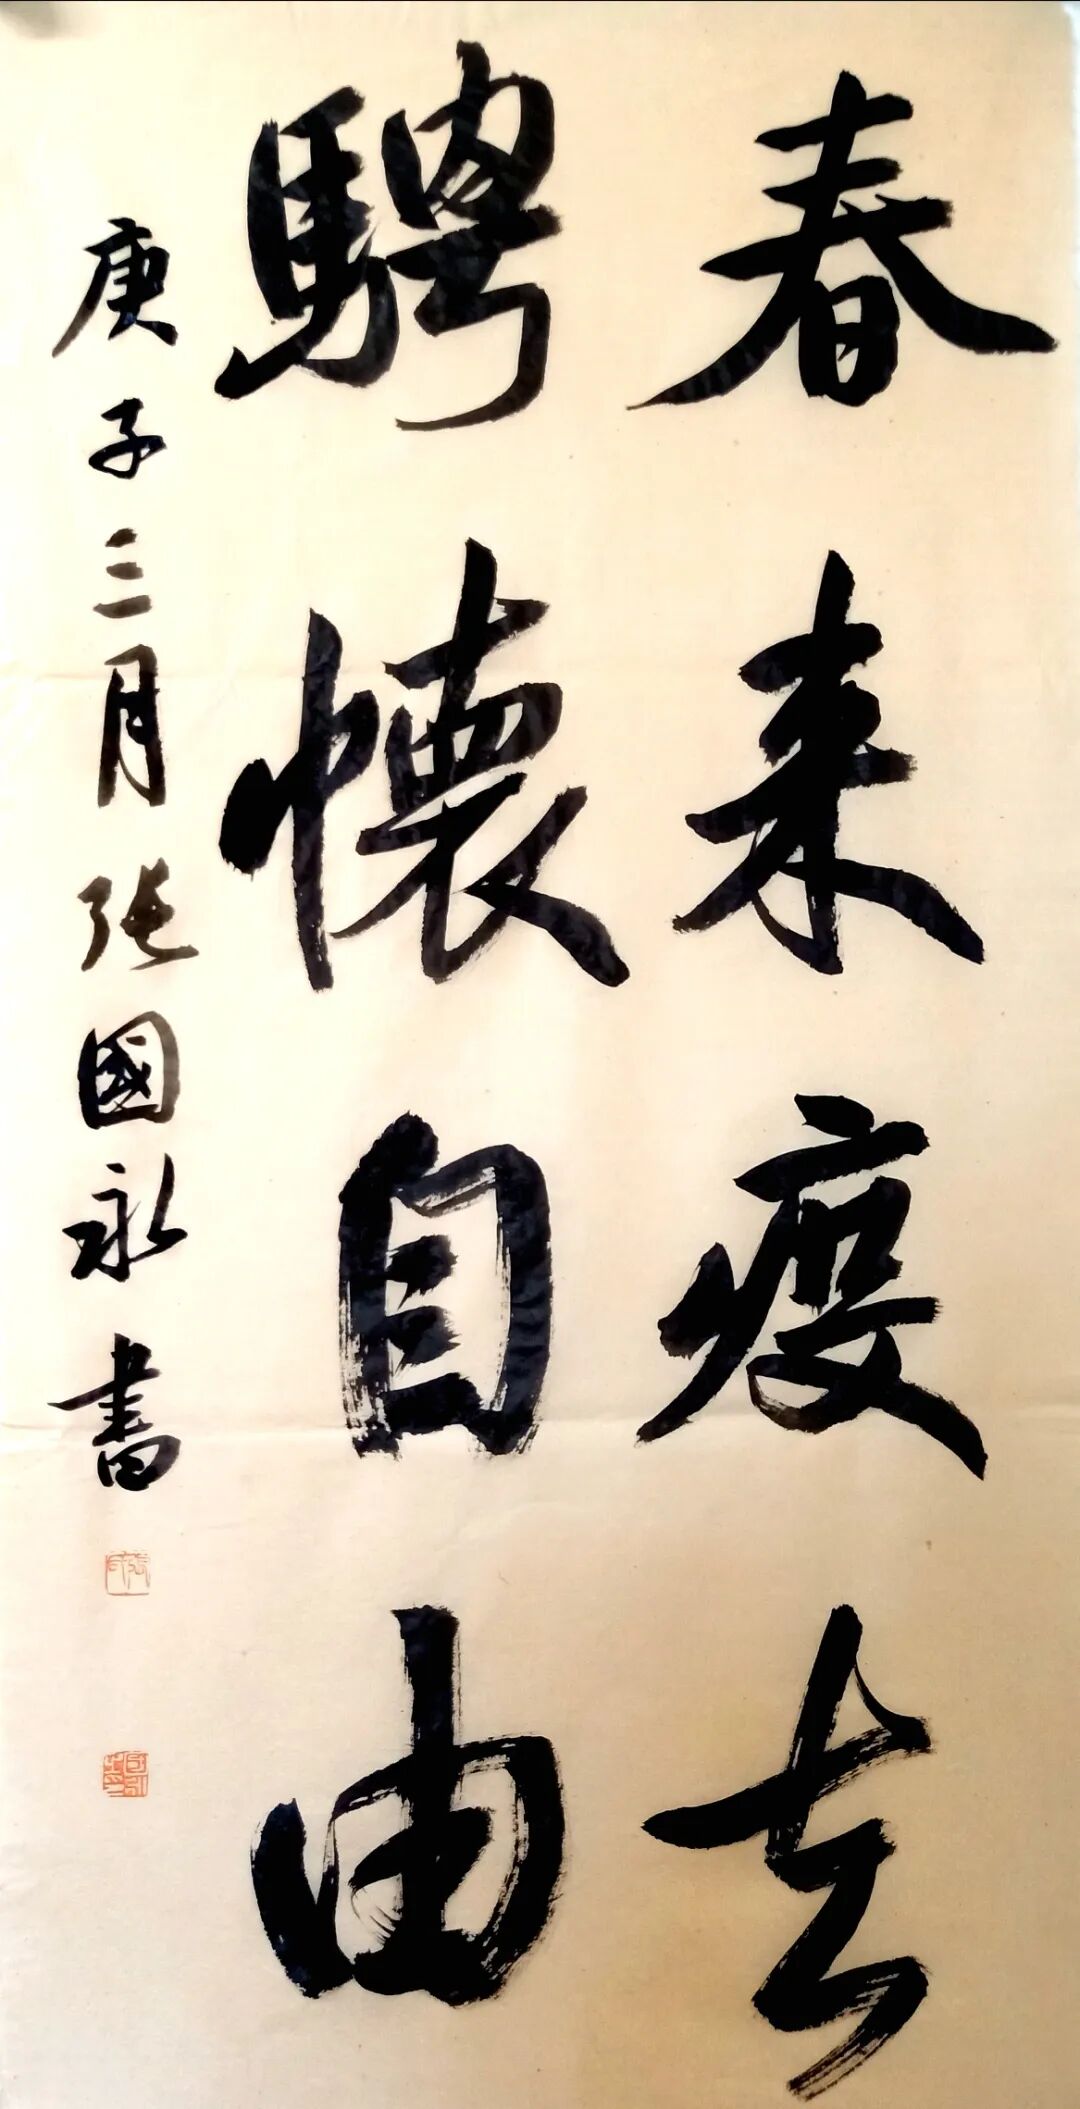 春来疫去
騁懷自由
庚子三月張國永書